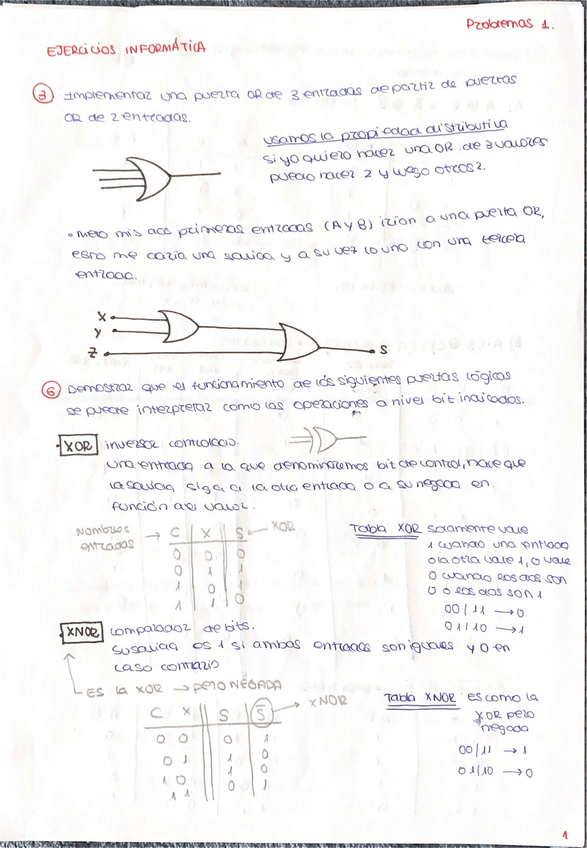 Problemas 1.
EJERCICIOS INFORMÁTICA
3 Implementar una puerta OR de 3 entradas a partir de puertas
OR de 2 entradas.
usamos la propiedad distributiva
si yo quiero hacer una OR de 3 valores
puedo hacer 2 y luego otros 2.
• Meto mis dos primeras entradas (A y B) irian a una puerta OR,
esto me daria una salida y a su vez lo uno con una tercera
entrada.
X
Y
Z
S
6 Demostrar que el funcionamiento de los siguientes puertas lógicas
se puede interpretar como las operaciones a nivel bit indicados.
XOR inversor controlado.
una entrada a la que denominaremos bit de control, hace que
la salida siga a la otra entrada o a su negada en
función del valor.
Nombres entradas → C X S ← XOR
0 0 0
0 1 1
1 0 1
1 1 0
Tabla XOR solamente vale
1 cuando una entrada
o la otra vale 1, o vale
0 cuando los dos son
0 o los dos son 1
00/11 → 0
01/10 → 1
XNOR comparador de bits.
Su salida es 1 si ambas entradas son iguales y 0 en
caso contrario
ES LA XOR → PERO NEGADA
C X S S̅ → XNOR
0 0 0 1
0 1 1 0
1 0 1 0
1 1 0 1
Tabla XNOR es como la
XOR pero
negada
00/11 → 1
01/10 → 0
1